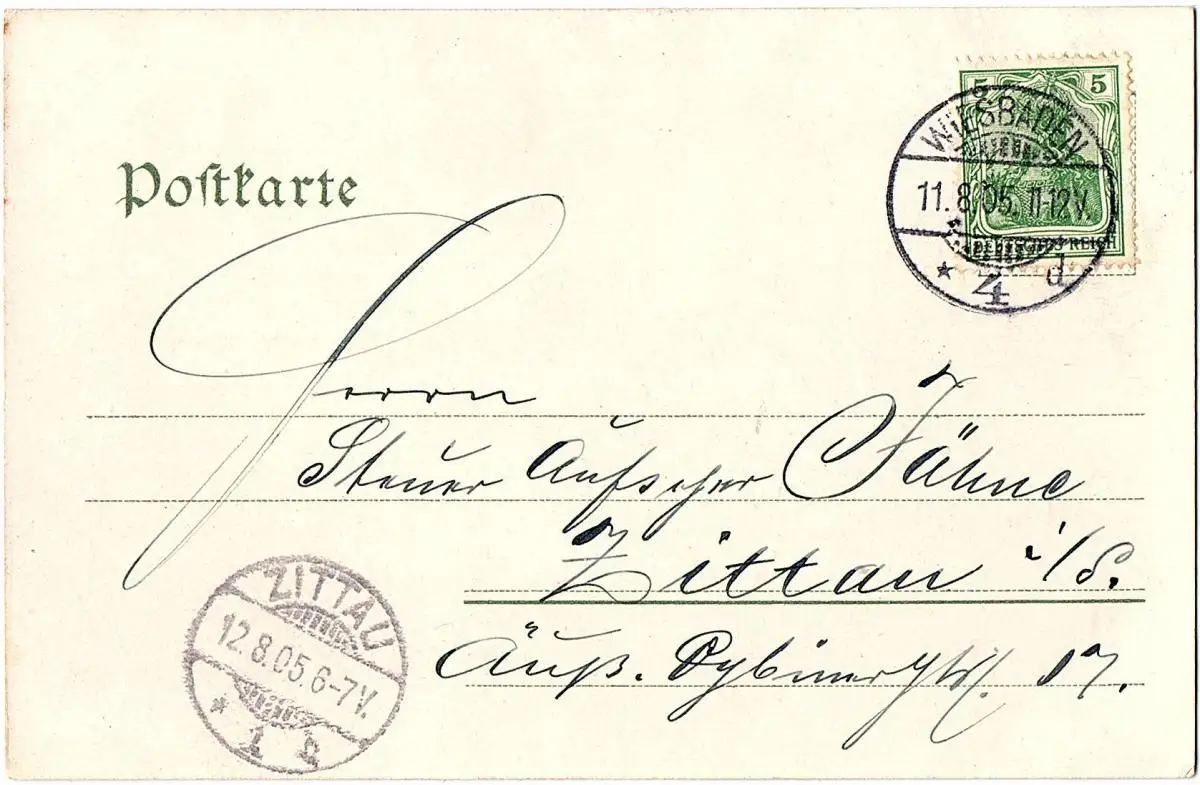 Postkarte
5 5
DEUTSCHES REICH
WIESBADEN
11.8.05. 11-12V.
* 4 d
Herrn
Steuer Aufseher Jähne
Zittau i/S.
Äuß. Oybinerstr. 17.
ZITTAU
12.8.05.6-7V.
* 1